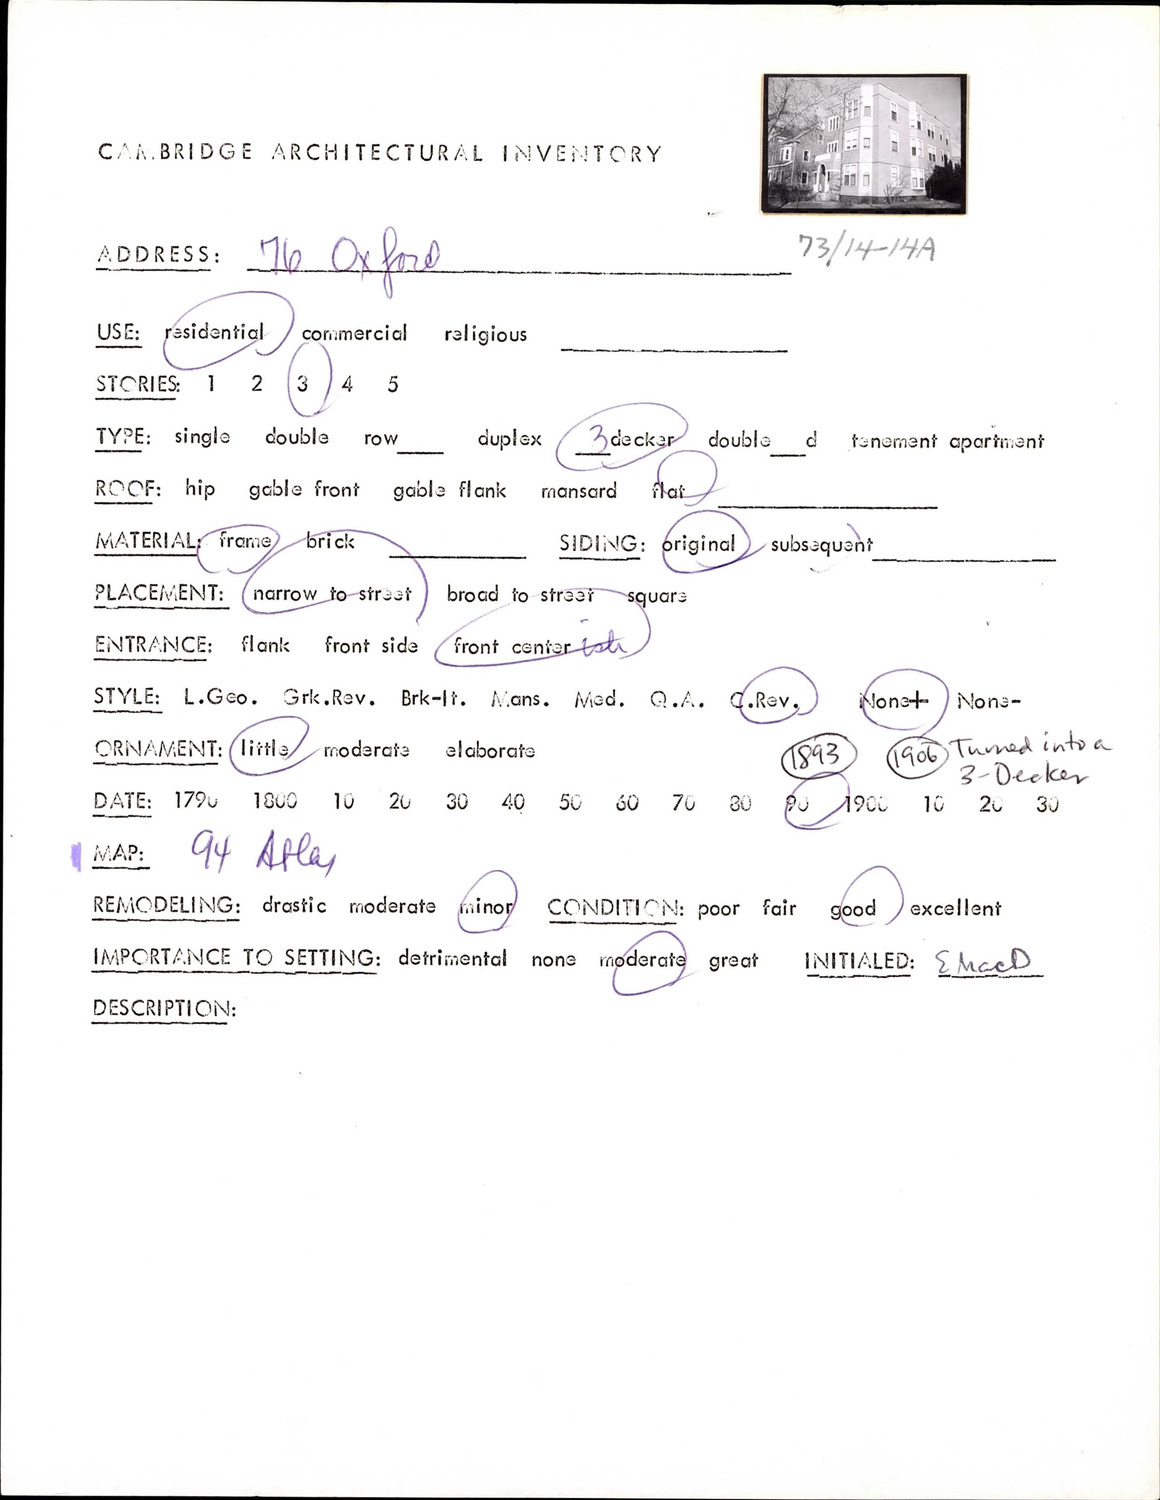 CAMBRIDGE ARCHITECTURAL INVENTORY
73/14-14A
ADDRESS: 76 Oxford
USE: residential commercial religious
STORIES: 1 2 3 4 5
TYPE: single double row___ duplex 3decker double___d tenement apartment
ROOF: hip gable front gable flank mansard flat
MATERIAL: frame brick SIDING: original subsequent
PLACEMENT: narrow to street broad to street square
ENTRANCE: flank front side front center ish
STYLE: L.Geo. Grk.Rev. Brk-It. Mans. Med. Q.A. C.Rev. None+ None-
ORNAMENT: little moderate elaborate 1893 1906 Turned into a
3-Decker
DATE: 1790 1800 10 20 30 40 50 60 70 80 90 1900 10 20 30
MAP: 94 Atlas
REMODELING: drastic moderate minor CONDITION: poor fair good excellent
IMPORTANCE TO SETTING: detrimental none moderate great INITIALED: EMacD
DESCRIPTION: